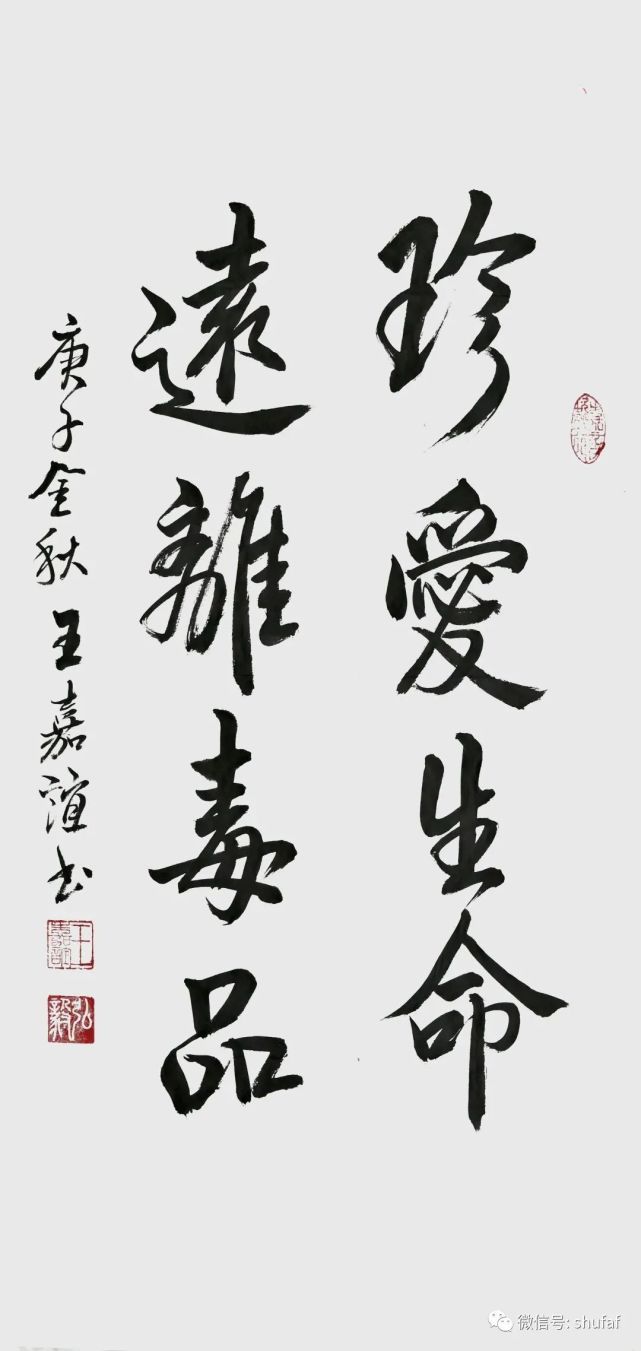 珍愛生命
遠離毒品
庚子金秋 王嘉誼书
王嘉誼
弘毅
微信号: shufaf